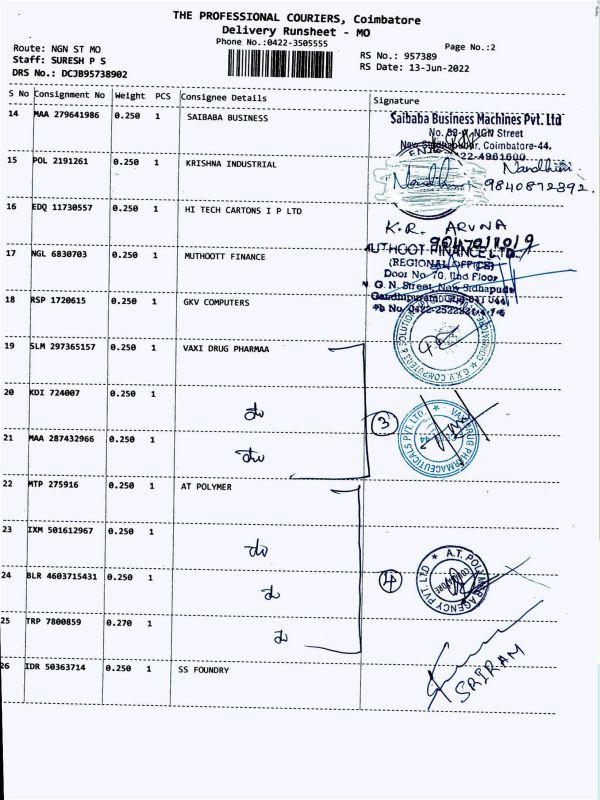 THE PROFESSIONAL COURIERS, Coimbatore
Delivery Runsheet - MO
Phone No.:0422-3505555
Page No.:2
Route: NGN ST MO
Staff: SURESH P S
DRS No.: DCJB95738902
RS No.: 957389
RS Date: 13-Jun-2022
S No Consignment No Weight PCS Consignee Details Signature
14 MAA 279641986 0.250 1 SAIBABA BUSINESS
Saibaba Business Machines Pvt. Ltd
NGN Street
Coimbatore-44.
15 POL 2191261 0.250 1 KRISHNA INDUSTRIAL
Nandhini
9840872392.
16 EDQ 11730557 0.250 1 HI TECH CARTONS I P LTD
K.R. ARUNA
17 NGL 6830703 0.250 1 MUTHOOTT FINANCE
MUTHOOT FINANCE LTD.
(REGIONAL OFFICE)
Door No. 70, IInd Floor
G. N. Street, New Sidhapudur
18 RSP 1720615 0.250 1 GKV COMPUTERS
19 SLM 297365157 0.250 1 VAXI DRUG PHARMAA
20 KDI 724007 0.250 1 do
3
VAXI DRUG PHARMACEUTICALS PVT. LTD.
21 MAA 287432966 0.250 1 do
22 MTP 275916 0.250 1 AT POLYMER
23 IXM 501612967 0.250 1 do
24 BLR 4603715431 0.250 1 do
4
A.T. POLYMER AGENCY PVT. LTD
COIMBATORE
25 TRP 7800859 0.270 1 do
26 IDR 50363714 0.250 1 SS FOUNDRY
SRIRAM